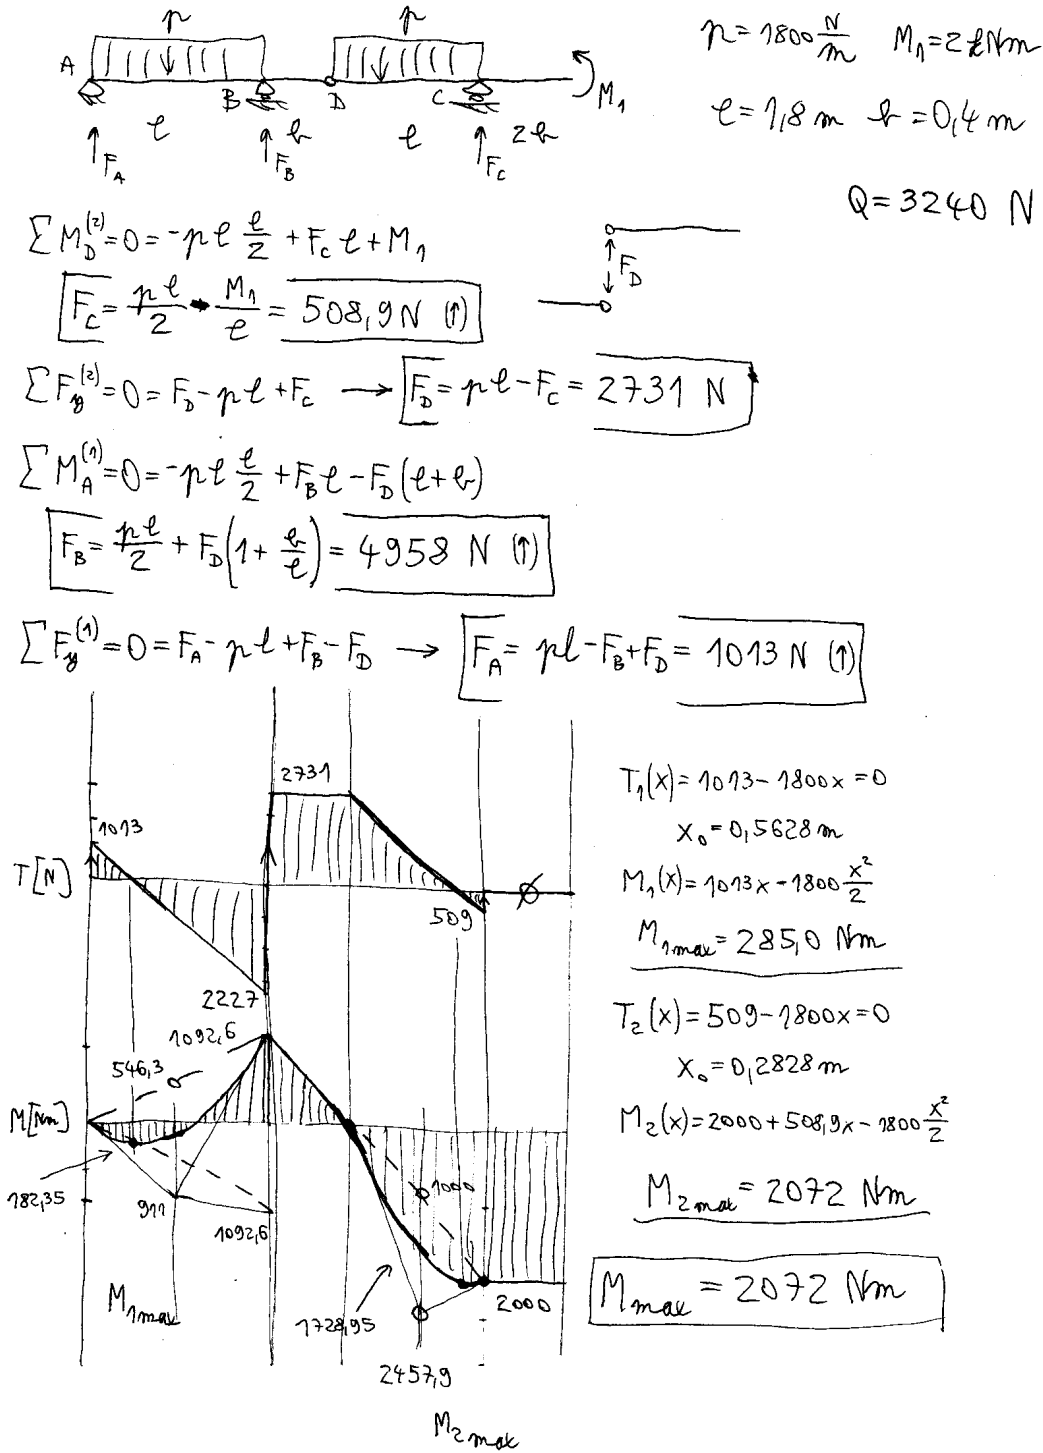 p p
A B D C M₁
l b l 2b
F_A F_B F_C
p = 1800 N/m M₁ = 2 kNm
l = 1,8 m b = 0,4 m
Q = 3240 N
∑M_D⁽²⁾ = 0 = -pl l/2 + F_C l + M₁
F_C = pl/2 - M₁/l = 508,9 N (↑)
F_D
∑F_y⁽²⁾ = 0 = F_D - pl + F_C → F_D = pl - F_C = 2731 N
∑M_A⁽¹⁾ = 0 = -pl l/2 + F_B l - F_D (l+b)
F_B = pl/2 + F_D (1 + b/l) = 4958 N (↑)
∑F_y⁽¹⁾ = 0 = F_A - pl + F_B - F_D → F_A = pl - F_B + F_D = 1013 N (↑)
2731
1013
T[N]
509
2227
1092,6
546,3
M[Nm]
182,35
911
1092,6
1000
2000
M₁max
1728,95
2457,9
M₂max
T₁(x) = 1013 - 1800x = 0
x₀ = 0,5628 m
M₁(x) = 1013x - 1800 x²/2
M₁max = 285,0 Nm
T₂(x) = 509 - 1800x = 0
x₀ = 0,2828 m
M₂(x) = 2000 + 508,9x - 1800 x²/2
M₂max = 2072 Nm
Mmax = 2072 Nm